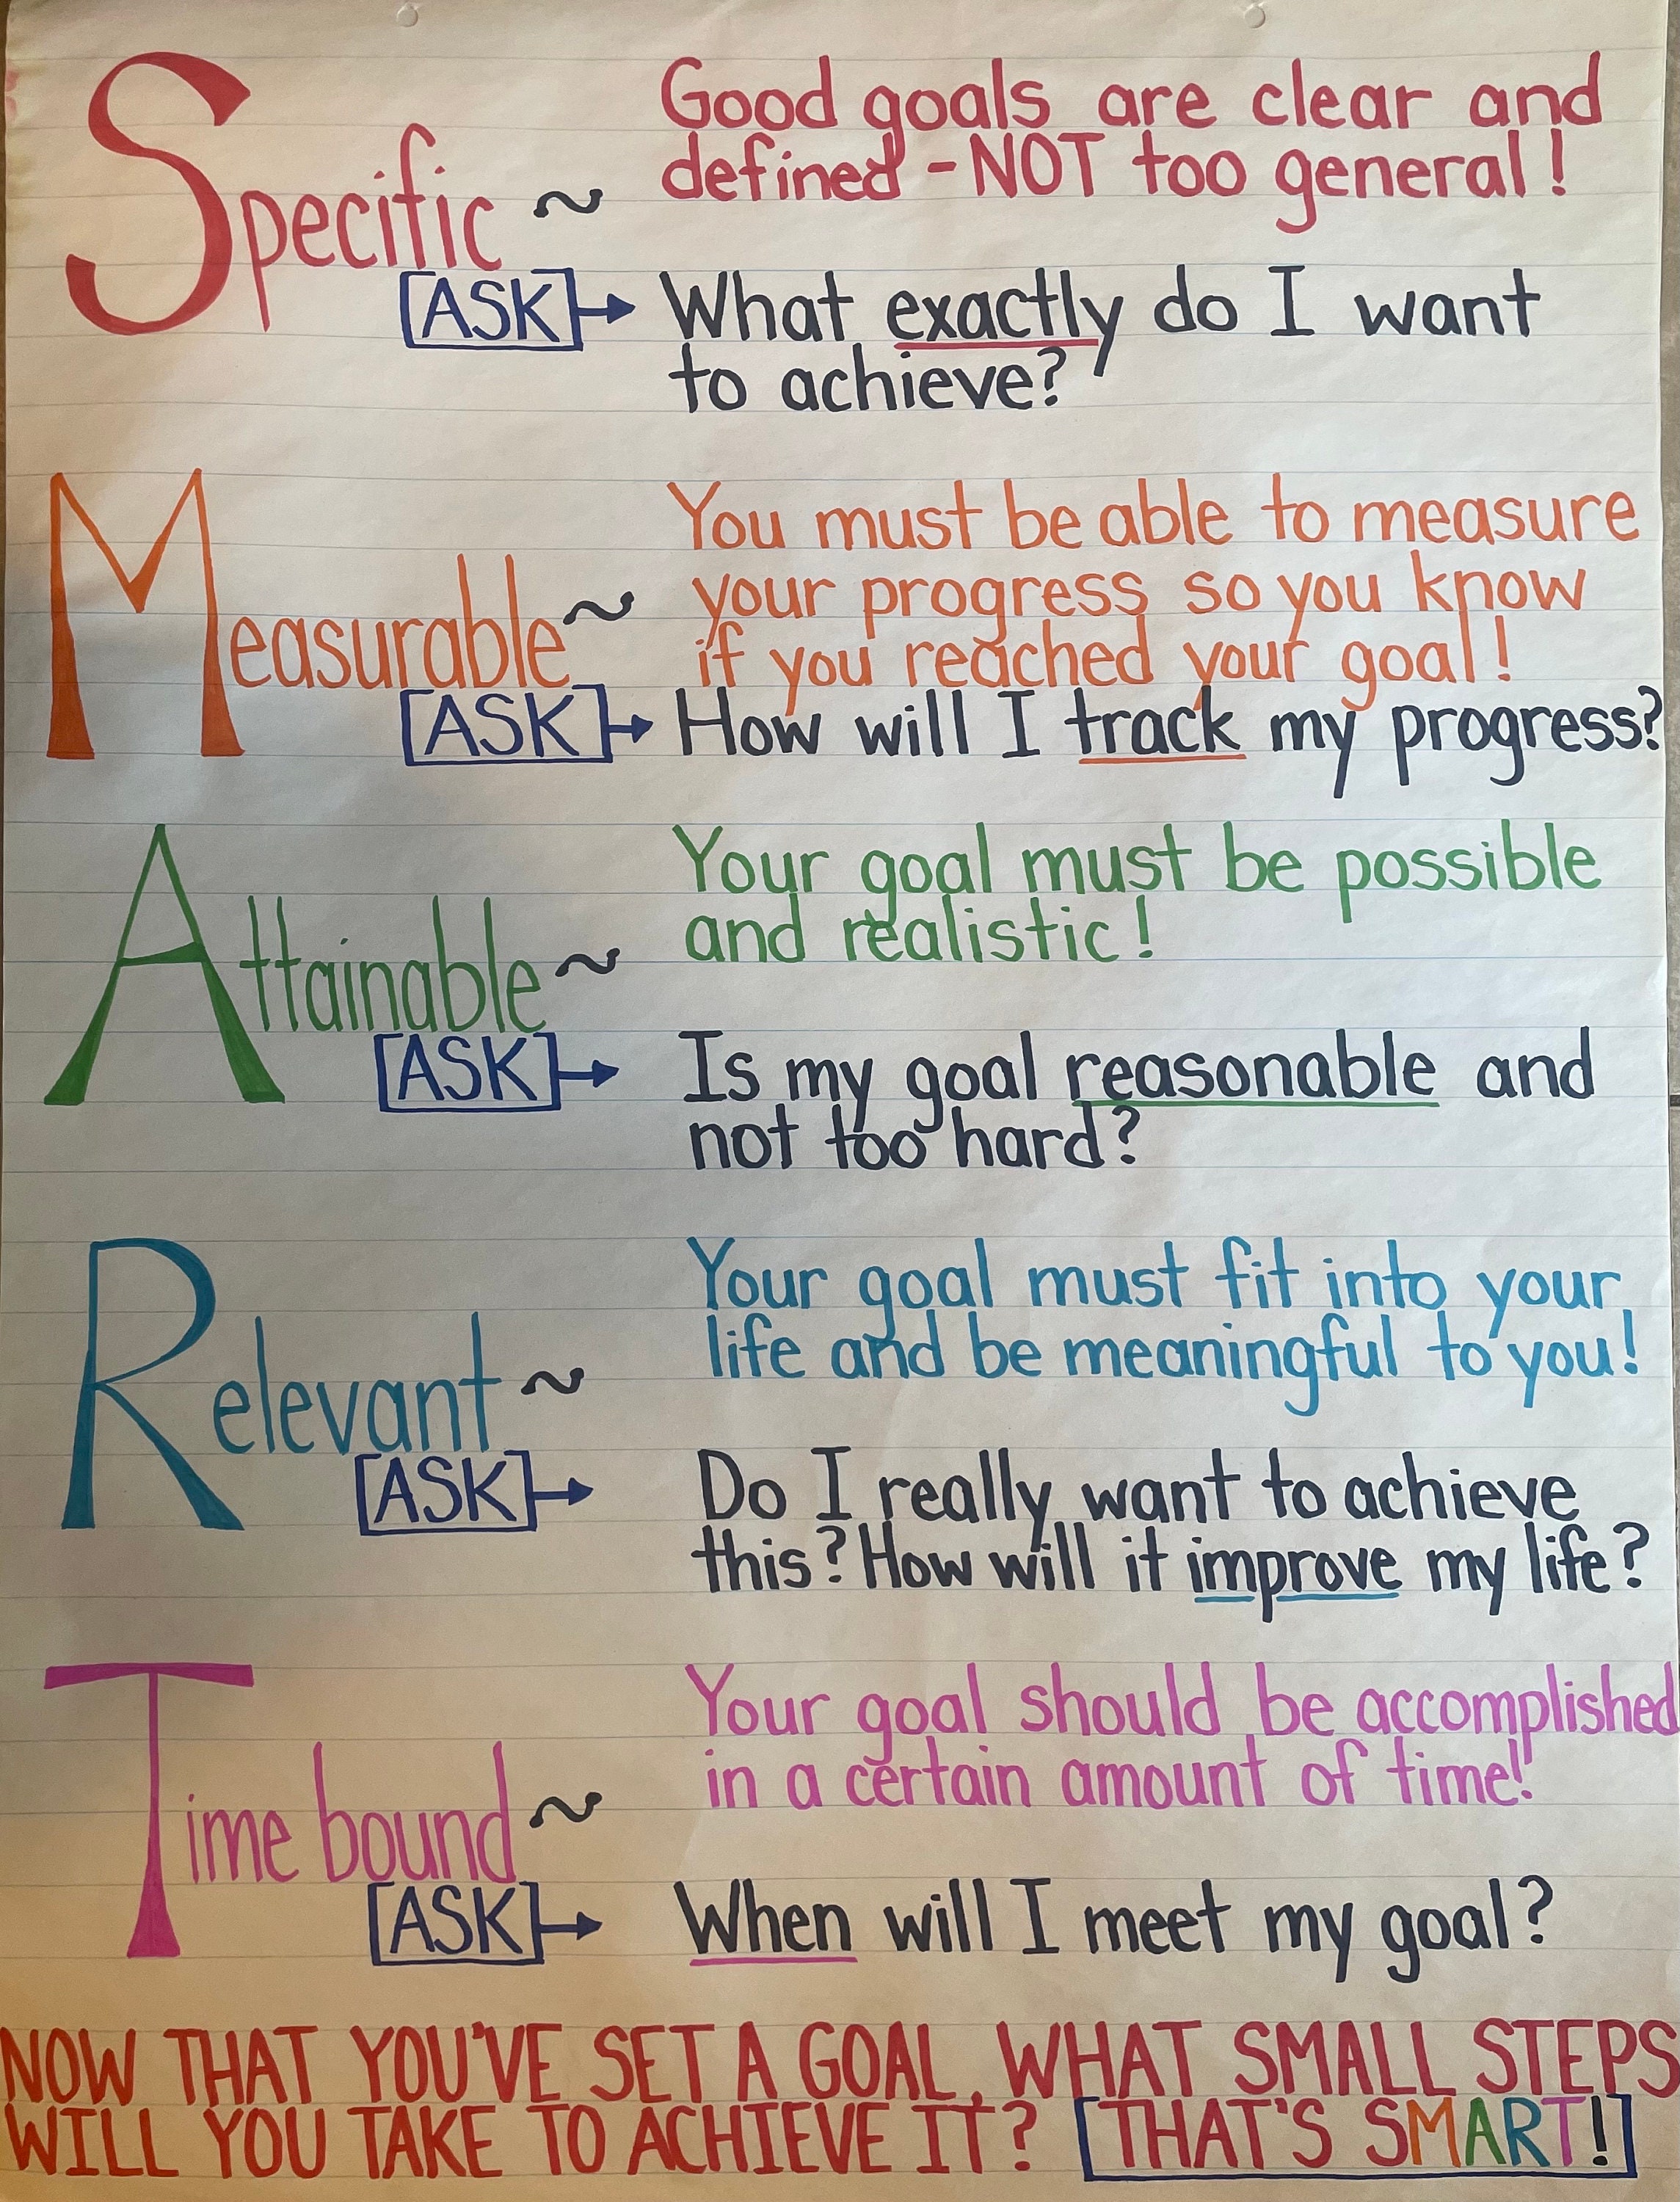 Good goals are clear and
defined - NOT too general!
Specific ~
[ASK]→ What exactly do I want
to achieve?
You must be able to measure
your progress so you know
if you reached your goal!
Measurable ~
[ASK]→ How will I track my progress?
Your goal must be possible
and realistic!
Attainable ~
[ASK]→ Is my goal reasonable and
not too hard?
Your goal must fit into your
life and be meaningful to you!
Relevant ~
[ASK]→ Do I really want to achieve
this? How will it improve my life?
Your goal should be accomplished
in a certain amount of time!
Time bound ~
[ASK]→ When will I meet my goal?
NOW THAT YOU'VE SET A GOAL, WHAT SMALL STEPS
WILL YOU TAKE TO ACHIEVE IT? [THAT'S SMART!]